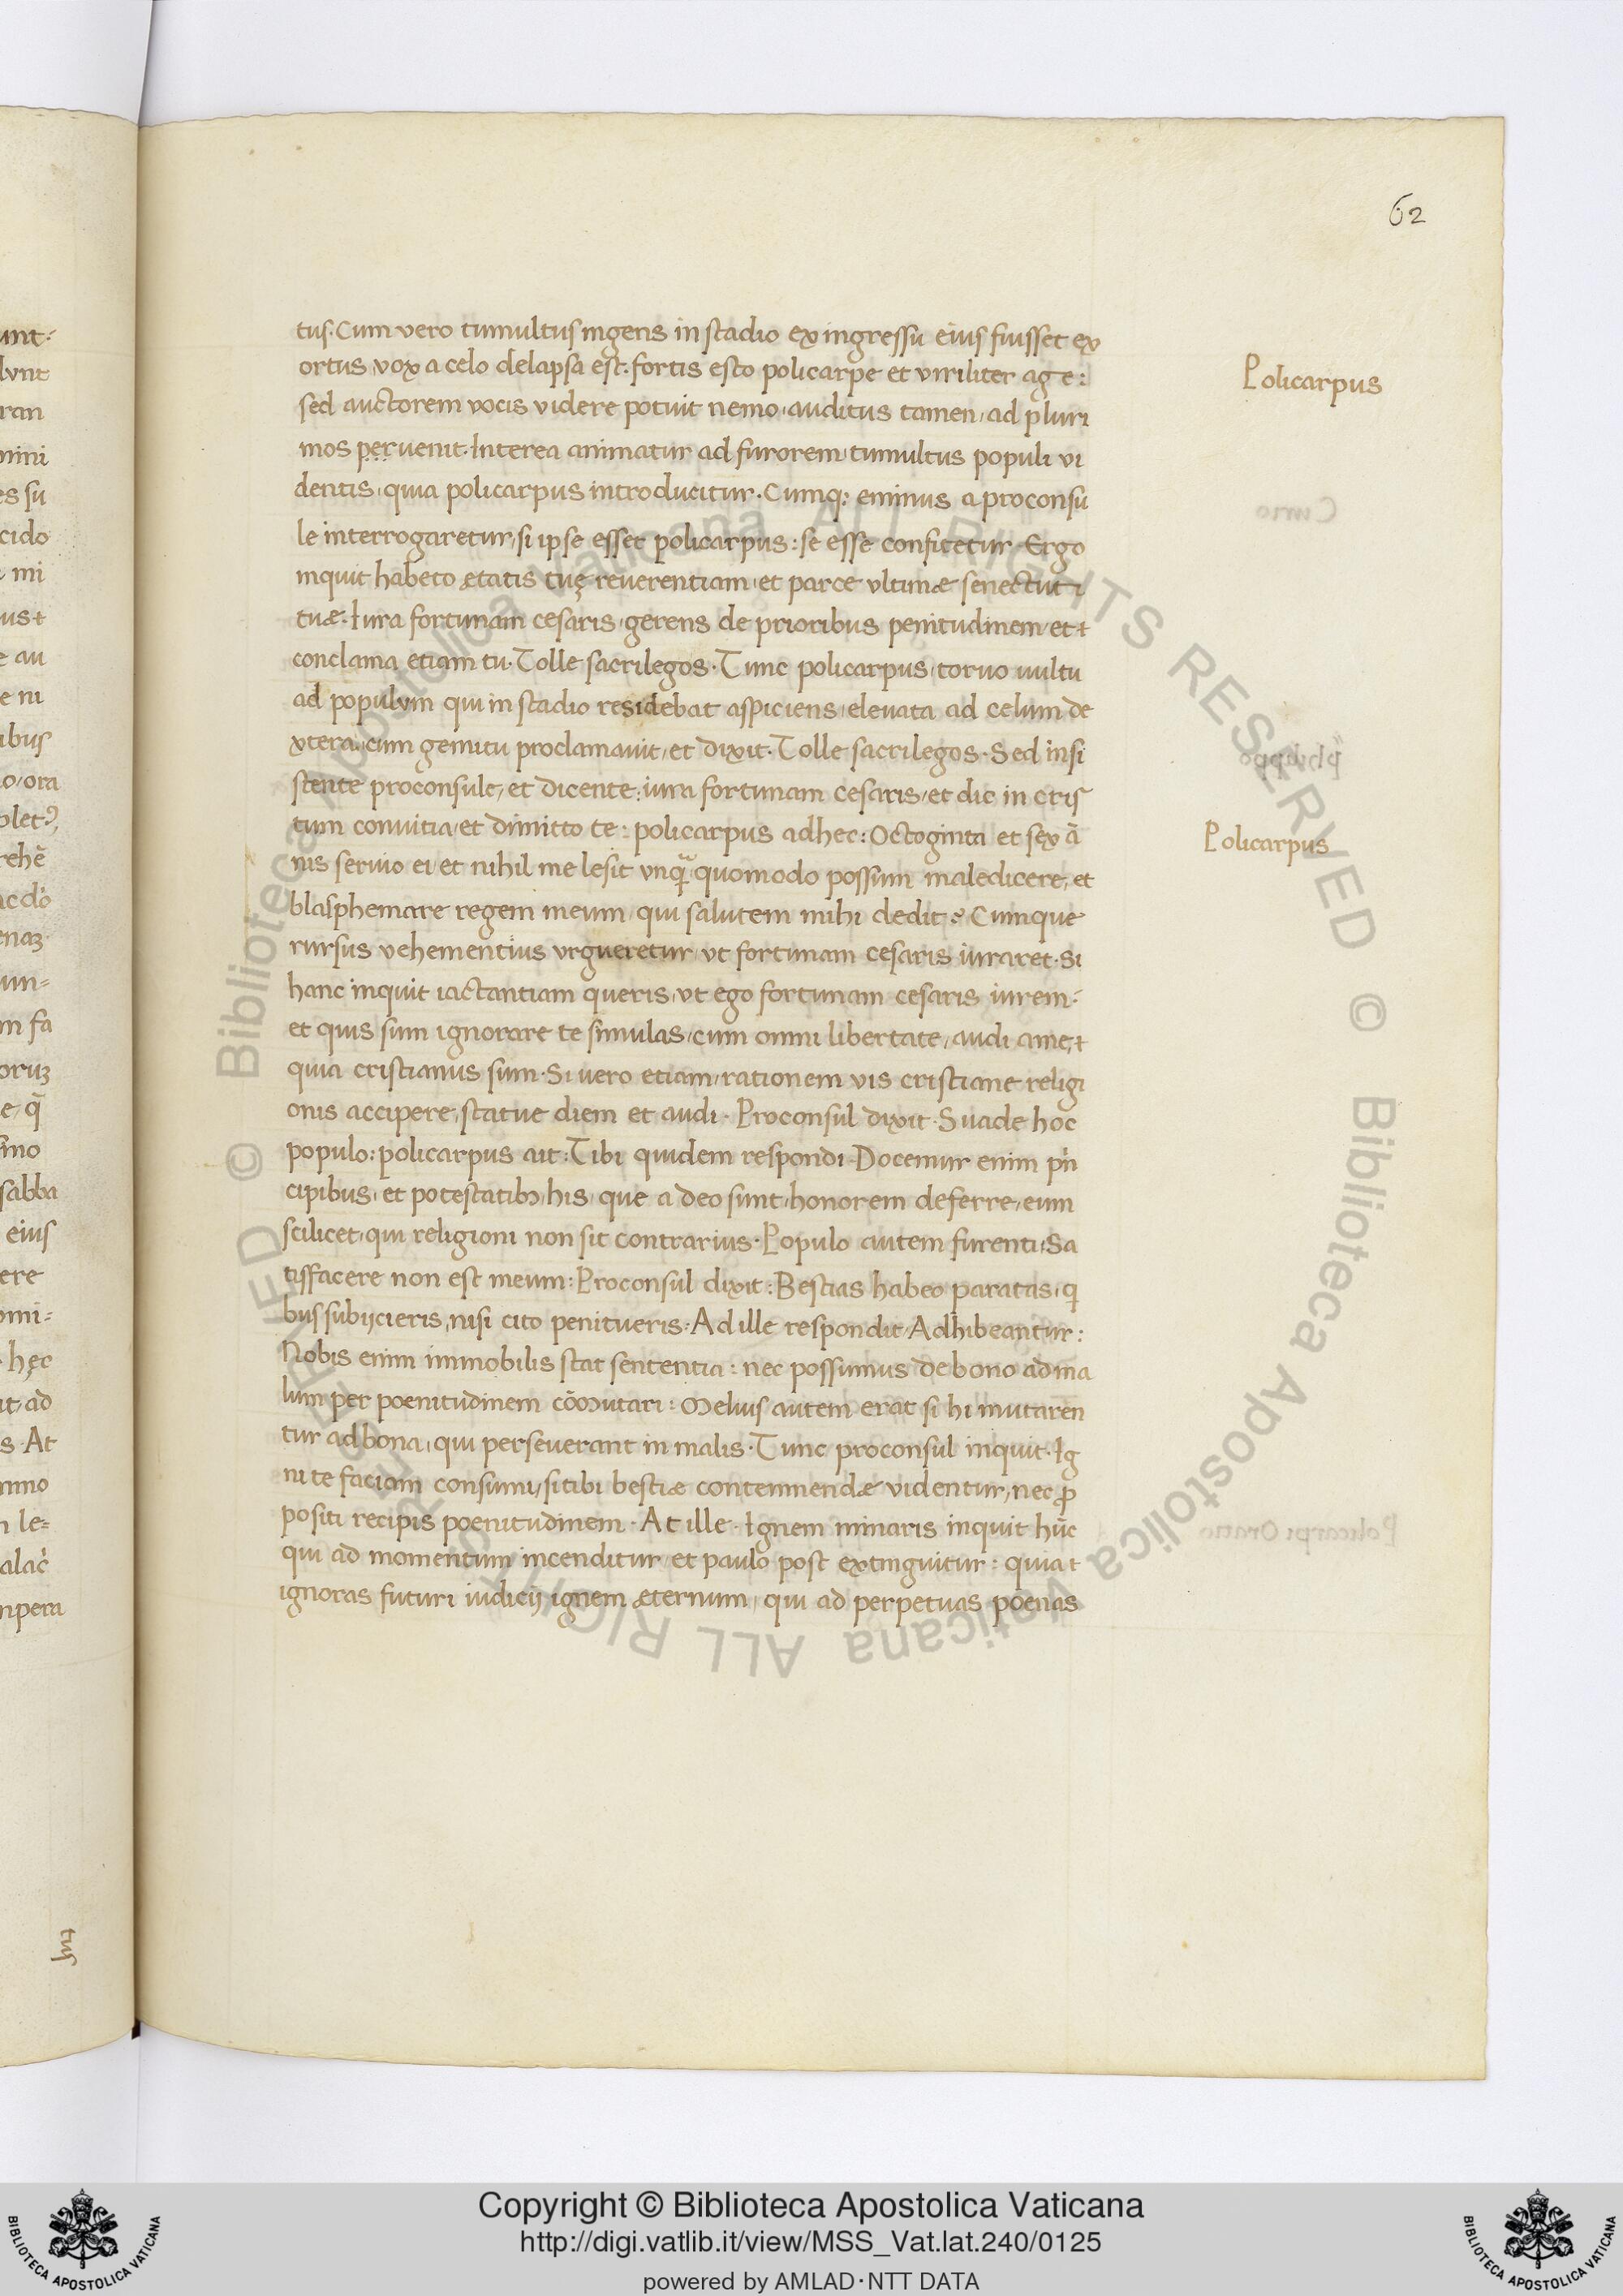 62
tus. Cum vero tumultus ingens in stadio ex ingressu eius fuisset ex
ortus vox a celo delapsa est: fortis esto policarpe et viriliter age:
Policarpus
sed auctorem vocis videre potuit nemo, auditus tamen, ad pluri
mos pervenit. Interea animatur ad furorem tumultus populi vi
dentis, quia policarpus introducitur. Cumq; eminus a proconsu
le interrogaretur, si ipse esset policarpus: se esse confitetur. Ergo
inquit habeto ętatis tuę reverentiam, et parce ultimæ senectuti
tuæ. Iura fortunam cesaris, gerens de prioribus penitudinem, et
conclama etiam tu. Tolle sacrilegos. Tunc policarpus, torvo vultu
ad populum qui in stadio residebat aspiciens, elevata ad celum de
xtera, cum gemitu proclamavit, et dixit. Tolle sacrilegos. Sed insi
stente proconsule, et dicente: iura fortunam cesaris, et dic in cris
tum convitia, et dimitto te: policarpus adhec: Octoginta et sex ā
Policarpus
nis servio ei, et nihil me lesit unq̄ quomodo possum maledicere, et
blasphemare regem meum, qui salutem mihi dedit? Cumque
rursus vehementius urgueretur, ut fortunam cesaris iuraret. Si
hanc inquit iactantiam queris, ut ego fortunam cesaris iurem:
et quis sum ignorare te simulas, cum omni libertate, audi a me,
quia cristianus sum. Si vero etiam, rationem vis cristiane religi
onis accipere, statue diem et audi. Proconsul dixit. Suade hoc
populo: policarpus ait: Tibi quidem respondi. Docemur enim pn
cipibus, et potestatib; his, que a deo sunt, honorem deferre, eum
scilicet, qui religioni non sit contrarius. Populo autem furenti, Sa
tisfacere non est meum: Proconsul dixit: Bestias habeo paratas, q
bus subijcieris, nisi cito penitueris. Ad ille respondit, Adhibeantur:
Nobis enim immobilis stat sententia: nec possumus de bono ad ma
lum per poenitudinem cōmutari: Melius autem erat si hi mutaren
tur ad bona, qui perseverant in malis. Tunc proconsul inquit. Ig
ni te faciam consumi, si tibi bestiæ contemnendæ videntur, nec ꝓ
positi recipis poenitudinem. At ille. Ignem minaris inquit hūc
qui ad momentum incenditur, et paulo post extinguitur: quia
ignoras futuri iudicij ignem æternum, qui ad perpetuas poenas
© Biblioteca Apostolica Vaticana ALL RIGHTS RESERVED
© Biblioteca Apostolica Vaticana ALL RIGHTS RESERVED
Copyright © Biblioteca Apostolica Vaticana
http://digi.vatlib.it/view/MSS_Vat.lat.240/0125
powered by AMLAD·NTT DATA
BIBLIOTECA APOSTOLICA VATICANA
BIBLIOTECA APOSTOLICA VATICANA